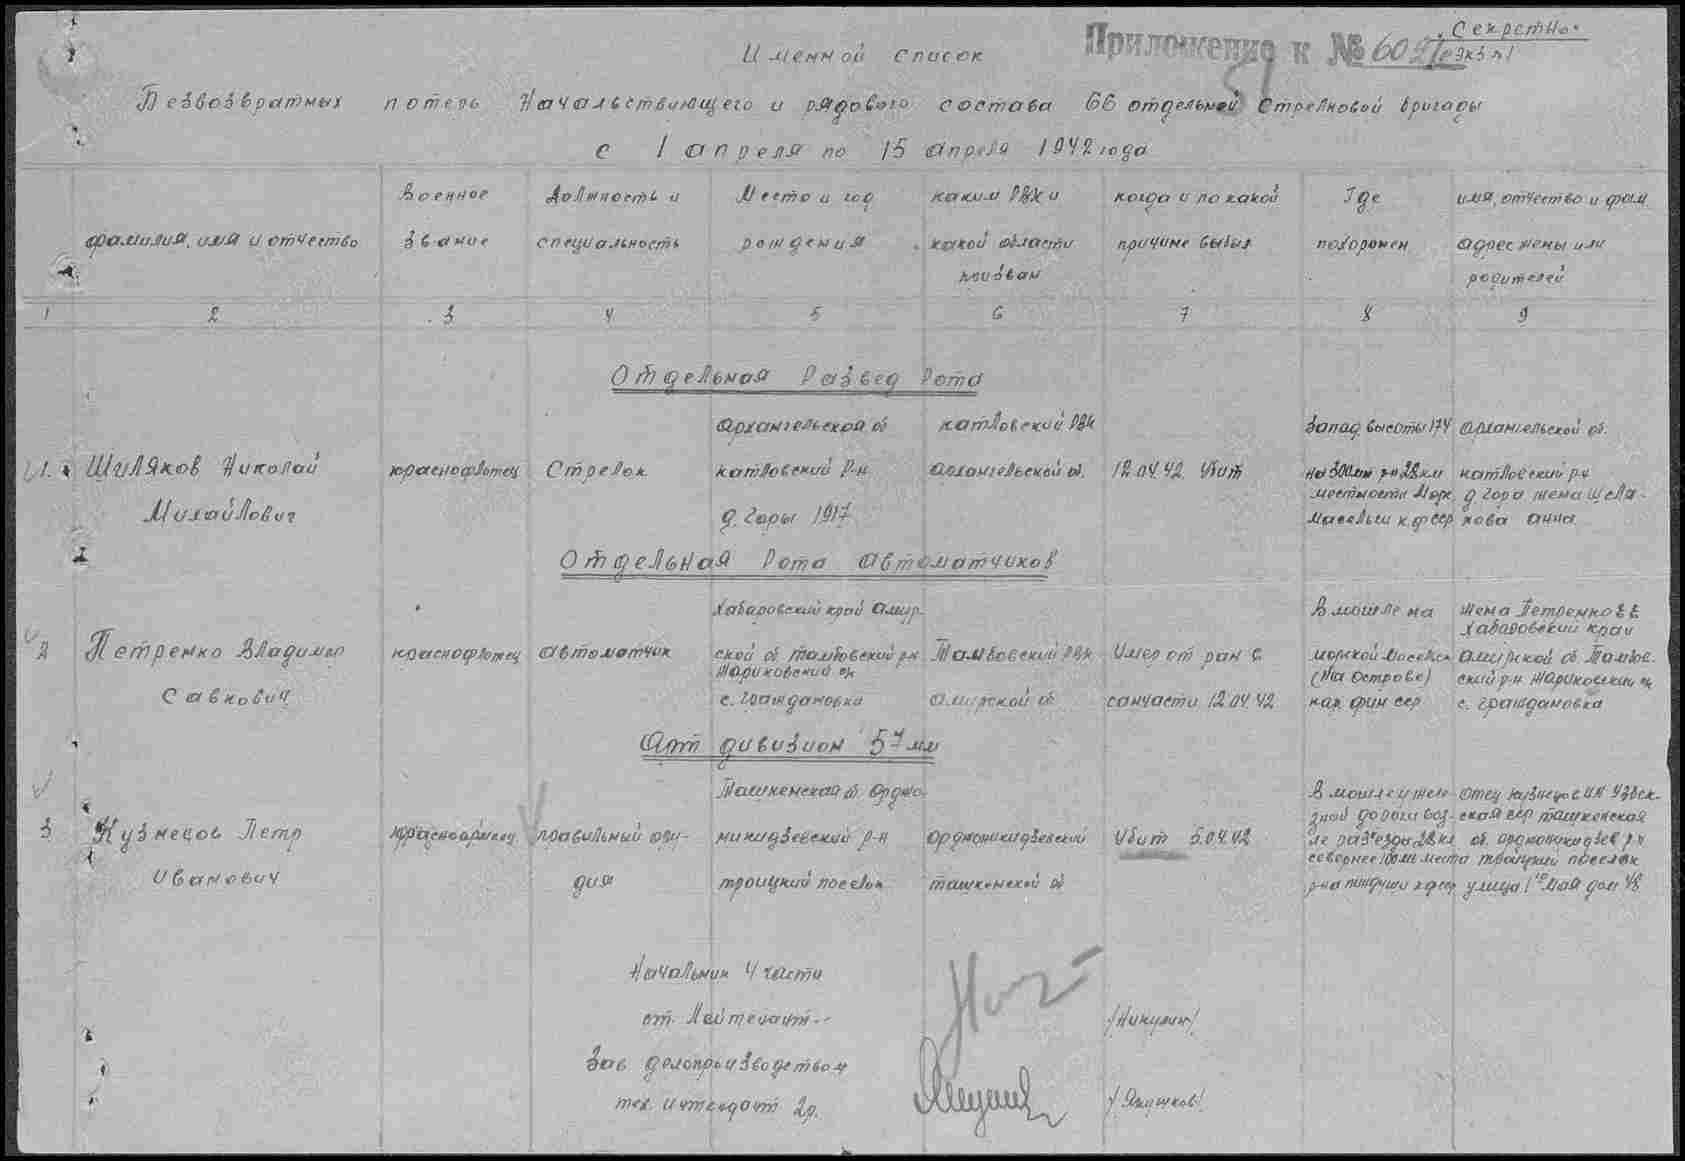 „Секретно“
Именной список
Приложение к № 6021с экз n 1
51
Безвозвратных потерь Начальствующего и рядового состава 66 отдельной стрелковой бригады
с 1 апреля по 15 апреля 1942 года
фамилия, имя и отчество
Военное
звание
Должность и
специальность
Место и год
рождения
каким РВК и
какой области
призван
когда и по какой
причине выбыл
Где
похоронен
имя, отчество и фам.
адрес жены или
родителей
1 2 3 4 5 6 7 8 9
Отдельная Развед Рота
1. Шиляков Николай
Михайлович
краснофлотец
Стрелок
Архангельской об
катловский р-н
д. Горы 1917
катловский РВК
Архангельской об.
12.04.42 Убит
Запад. высоты 174
на 300 мт р-н 28 км
местности Морк.
Масельги к.ф сср
Архангельской об.
катловский р-н
д Гора жена Шиля-
кова Анна
Отдельная Рота автоматчиков
2 Петренко Владимир
Савкович
краснофлотец
автоматчик
Хабаровский край амур-
ской об тамбовский р-н
Жариковский с/с
с. Граждановка
Тамбовский РВК
Амурской об
Умер от ран в
санчасти 12.04.42
В могиле на
морской Масельге
(На острове)
кар. фин сср
жена Петренко Е Е
Хабаровский край
амурской об. Тамбов-
ский р-н Жариковский с/с
с. Граждановка
Арт дивизион 57 мм
3 Кузнецов Петр
Иванович
красноармеец
правильный ору-
дия
Ташкенской об. Орджо-
никидзевский р-н
троицкий поселок
орджоникидзевский
ташкенской об
Убит 5.04.42
В могиле у желе-
зной дороги воз-
ле раз'езда 28 км
севернее 100 мт места
р-на
отец кузнецов И.П. Узбек-
ская сср ташкенская
об. орджоникидзев р-н
троицкий поселок
улица 1го Мая дом 48
Начальник 4 части
ст. Лейтенант -
/Никулин/
Зав делопроизводством
тех. Интендант 2 р.
/Якушков/